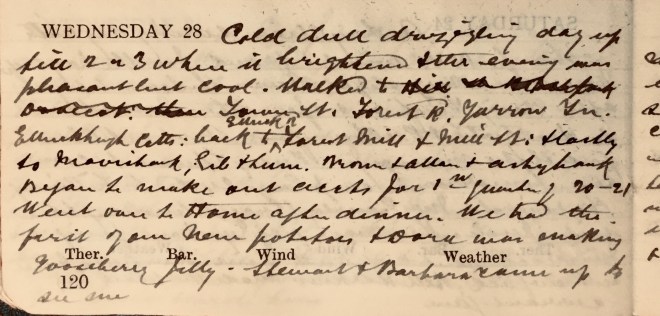 WEDNESDAY 28 Cold dull drizzling day up
till 2 or 3 when it brightened & the evening was
pleasant but cool. Walked to
Tower St. Forest R. Yarrow Tn.
Ettrickhaugh Cotts: back to Ettrick R Forest Mill & Mill St: & lastly
to & Linn. Brown & Allan & Ashybank
Began to make out accts for 1st quarter of 20-21
Went over to Home after dinner. We had the
first of our new potatoes & Dora was making
Ther. Bar. Wind Weather
gooseberry jelly - Stewart & Barbara came up to
120 see me